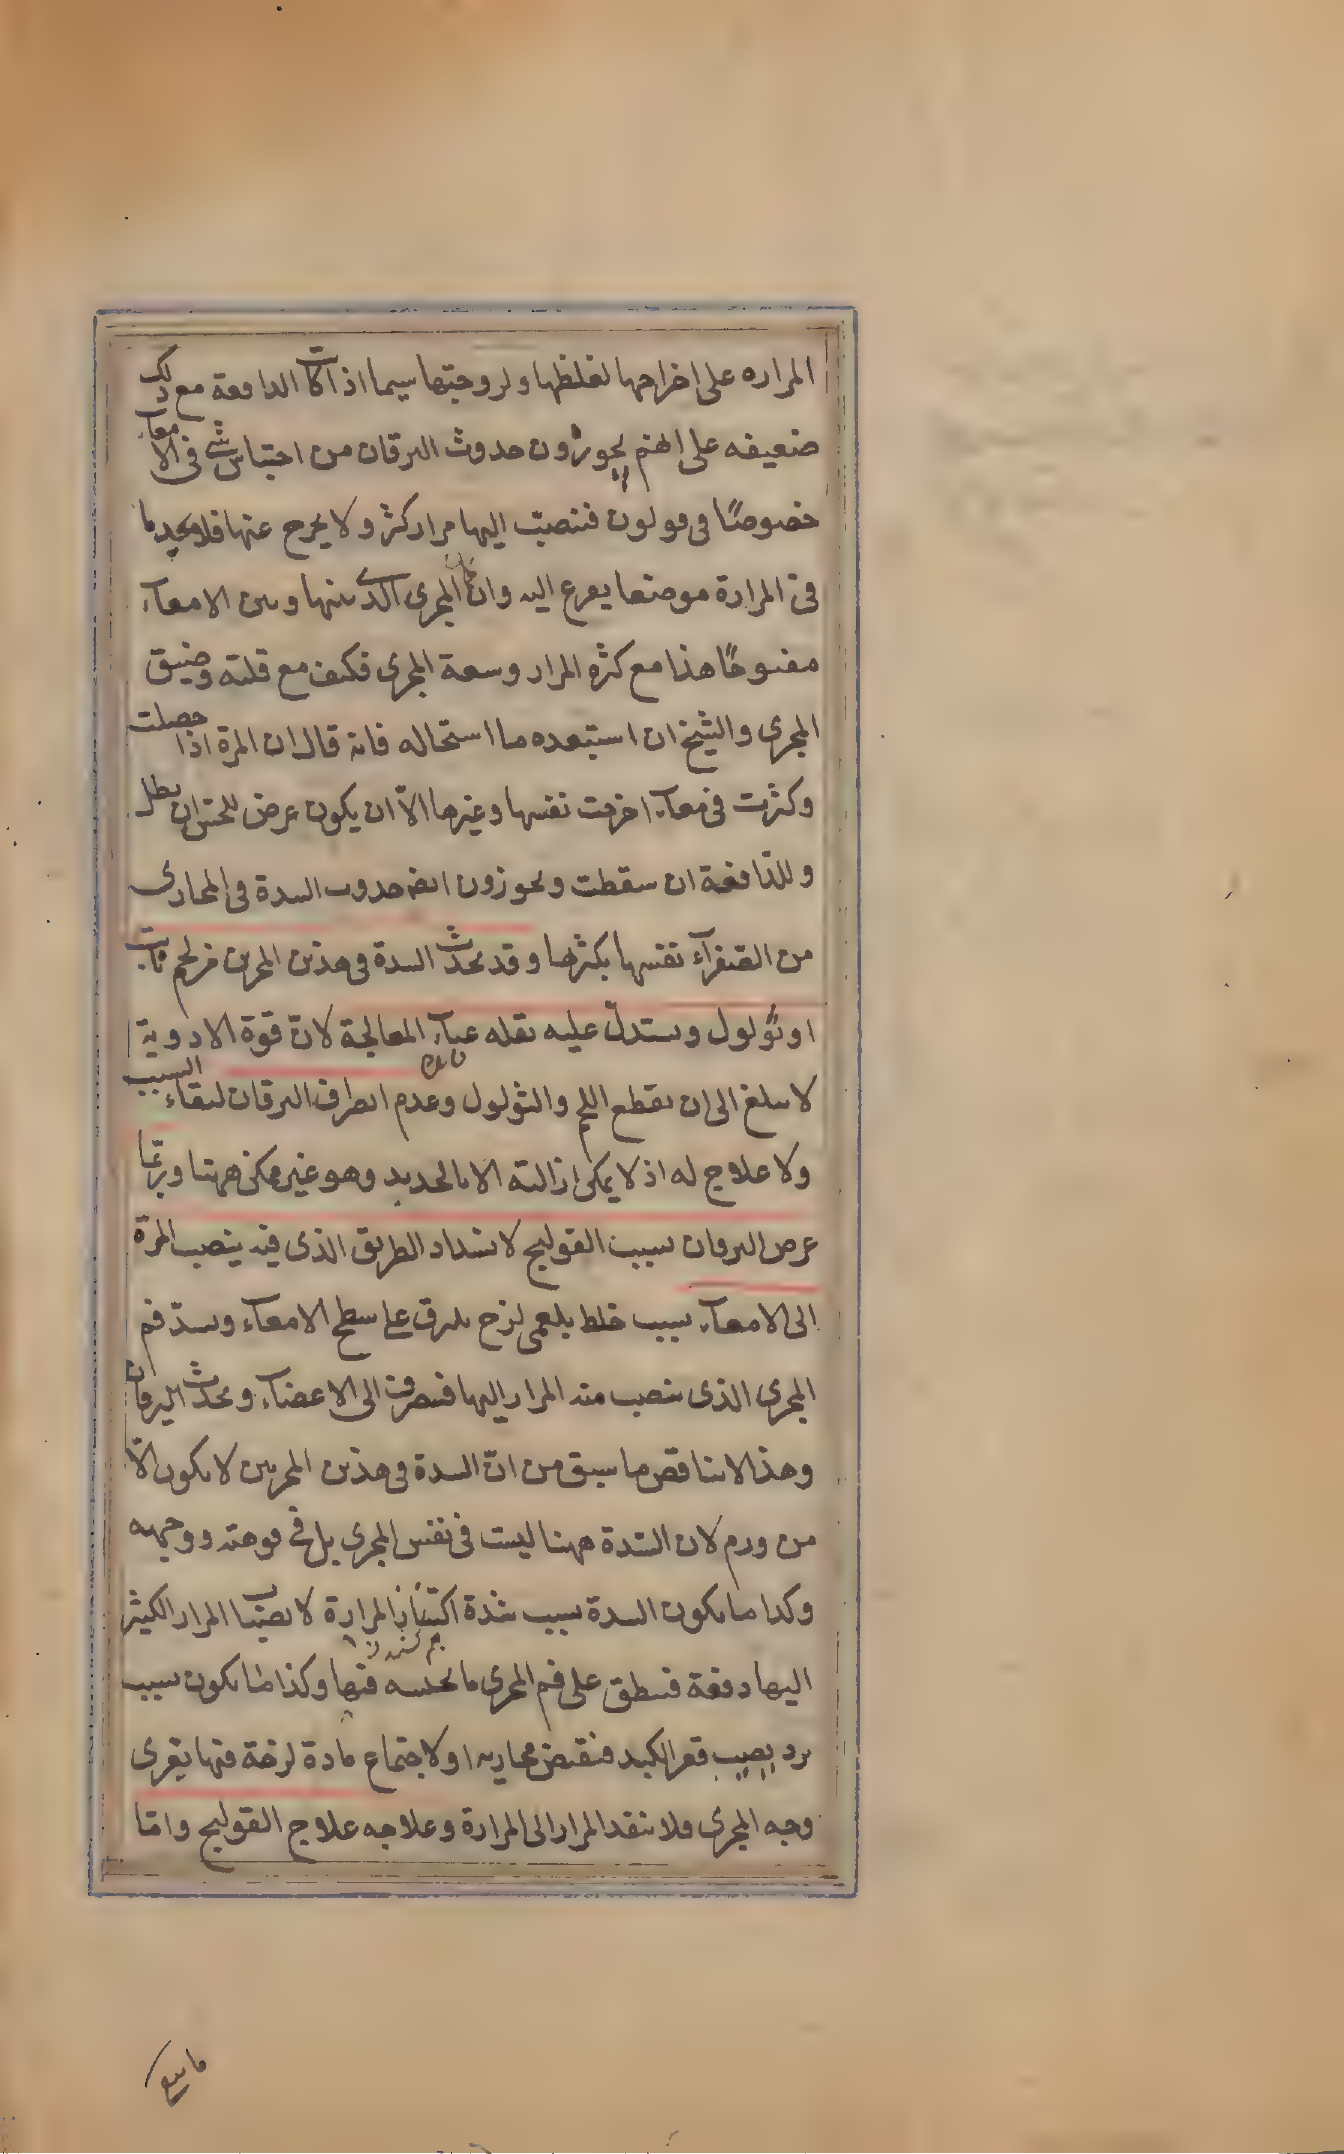 المراره على اخراجها لغلظها ولزوجتها سيما اذا كانت الدافعة مع ذلك
ضعيفه على انهم يجوزون حدوث اليرقان من احتباس شئ فى الامعاء
خصوصًا فى قولون فتنصبّ اليها مرار كثر ولا يخرج عنها فلا يجد ما
فى المرارة موضعا يفرغ اليه وان كان المجرى الذى بينها وبين الامعاء
مفتوحًا هذا مع كثره المرار وسعة المجرى فكيف مع قلته وضيق
المجرى والشيخ ان استبعده ما استحاله فانه قال ان المرة اذا حصلت
وكثرت فى معاء اخرجت نفسها وغيرها الاّ ان يكون عرض للحس ان بطل
وللدّافعة ان سقطت ويجوزون ايضا حدوث السدة فى المجارى
من الصفراء نفسها بكثرها وقد يحدث السدة فى هذين المجرين من لحم نابت
او ثؤلول ويستدلّ عليه بقله غناء المعالجة لانّ قوة الادوية
لا تبلغ الى ان يقطع اللحم والثؤلول وعدم انطراف اليرقان لبقاء السبب
ولا علاج له اذ لا يمكن ازالته الا بالحديد وهو غير ممكن ههنا وربّما
عرض اليرقان بسبب القولنج لانسداد الطريق الذى فيه ينصب المرّة
الى الامعاء بسبب خلط بلغمى لزج يلزق على سطح الامعاء ويسدّ فم
المجرى الذى ينصب منه المرار اليها فينصرف الى الاعضاء ويحدث اليرقان
وهذا لا يناقض ما سبق من انّ السدة فى هذين المجريين لا يكون الاّ
من ورم لان السّدة ههنا ليست فى نفس المجرى بل فى فوهته ووجهه
وكذا ما يكون السدة بسبب شدة اكتناز المرارة لانصباب المرار الكثير
اليها دفعة فينطبق على فم المجرى ما يحبسه فيها وكذا ما يكون بسبب
برد يصيب قعر الكبد فيقبض مجاريه او لاجتماع مادة لزجة فيها يغرى
وجه المجرى ولا ينفذ المرار الى المرارة وعلاجه علاج القولنج وامّا